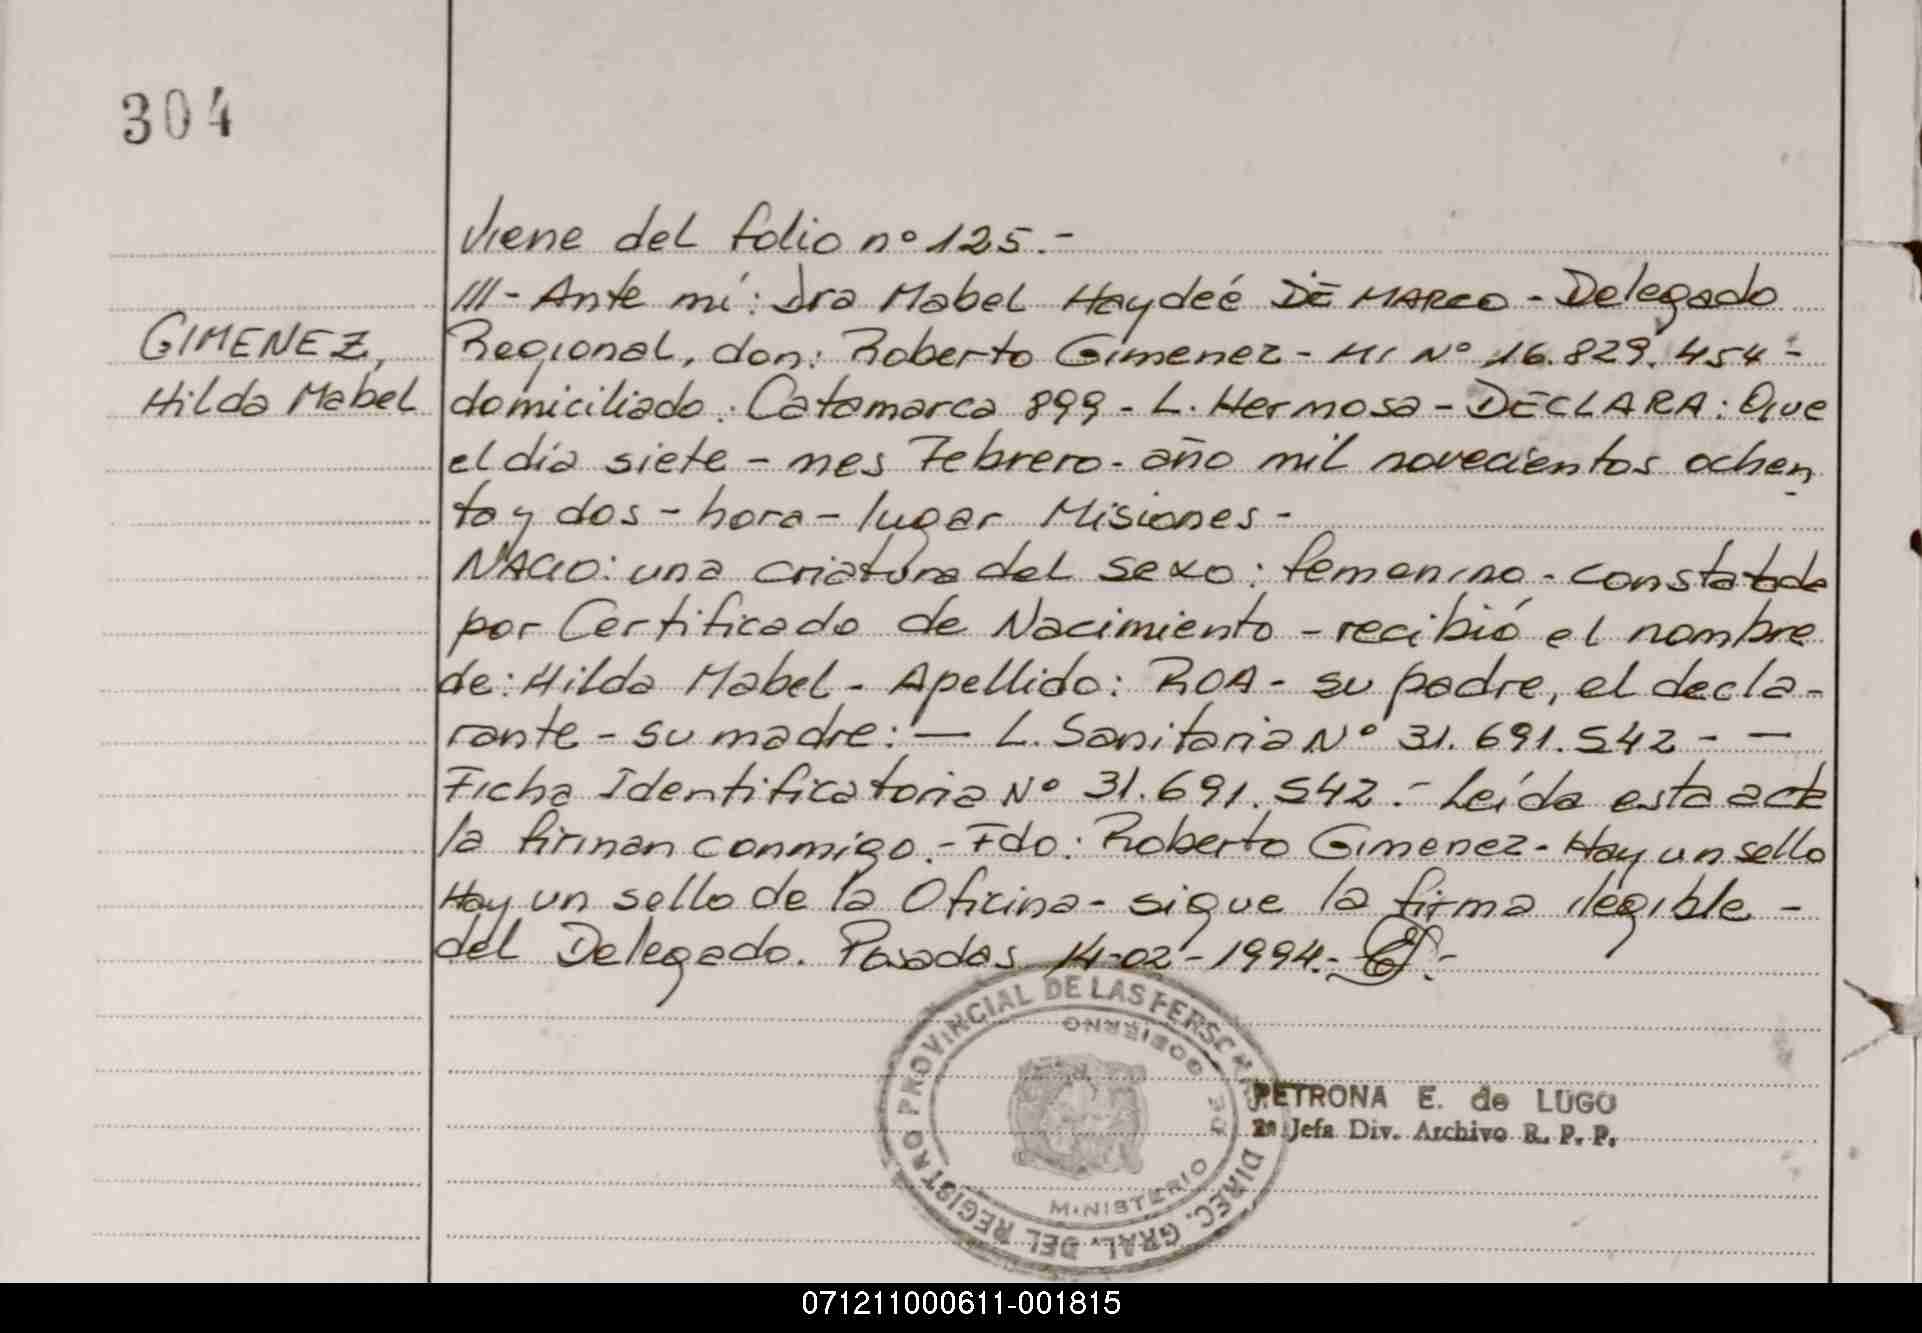 304
Viene del folio nº 125.-
III - Ante mí: Dra Mabel Haydeé DE MARCO - Delegado
GIMENEZ,
Regional, don: Roberto Gimenez - MI Nº 16.829.454 -
Hilda Mabel
domiciliado: Catamarca 899 - L. Hermosa - DECLARA: Que
el día siete - mes Febrero - año mil novecientos ochen
ta y dos - hora - lugar Misiones -
NACIO: una criatura del sexo: femenino - constatada
por Certificado de Nacimiento - recibió el nombre
de: Hilda Mabel - Apellido: ROA - su padre, el decla-
rante - su madre: — L. Sanitaria Nº 31.691.542 - —
Ficha Identificatoria Nº 31.691.542.- Leída esta acta
la firman conmigo.- Fdo: Roberto Gimenez - Hay un sello
Hay un sello de la Oficina - sigue la firma ilegible -
del Delegado. Posadas 14-02-1994.-
DIREC. GRAL. DEL REGISTRO PROVINCIAL DE LAS PERSONAS
MINISTERIO DE GOBIERNO
PETRONA E. de LUGO
2ª Jefa Div. Archivo R. P. P.
071211000611-001815